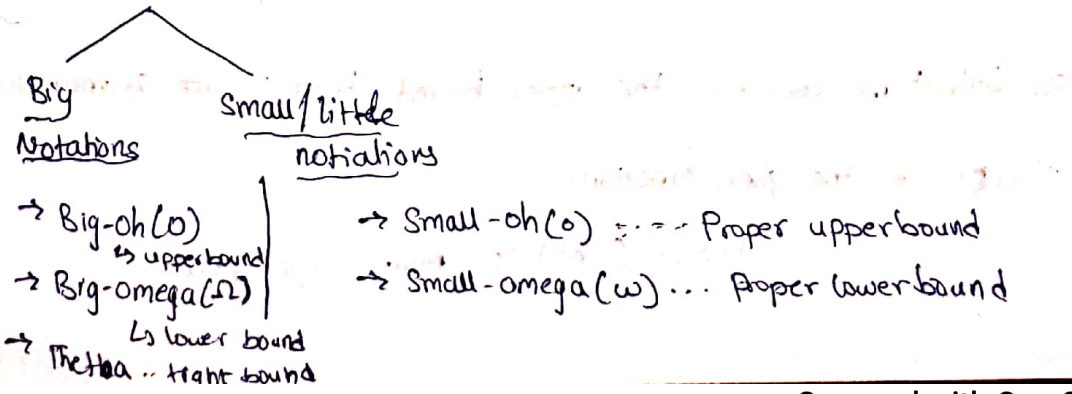 Big
Notations
→ Big-oh(O)
↳ upperbound
→ Big-omega(Ω)
↳ lower bound
→ Thetha .. tight bound
Small/little
notiations
→ Small-oh(o) ::--- Proper upperbound
→ Small-omega(ω)... proper lowerbound